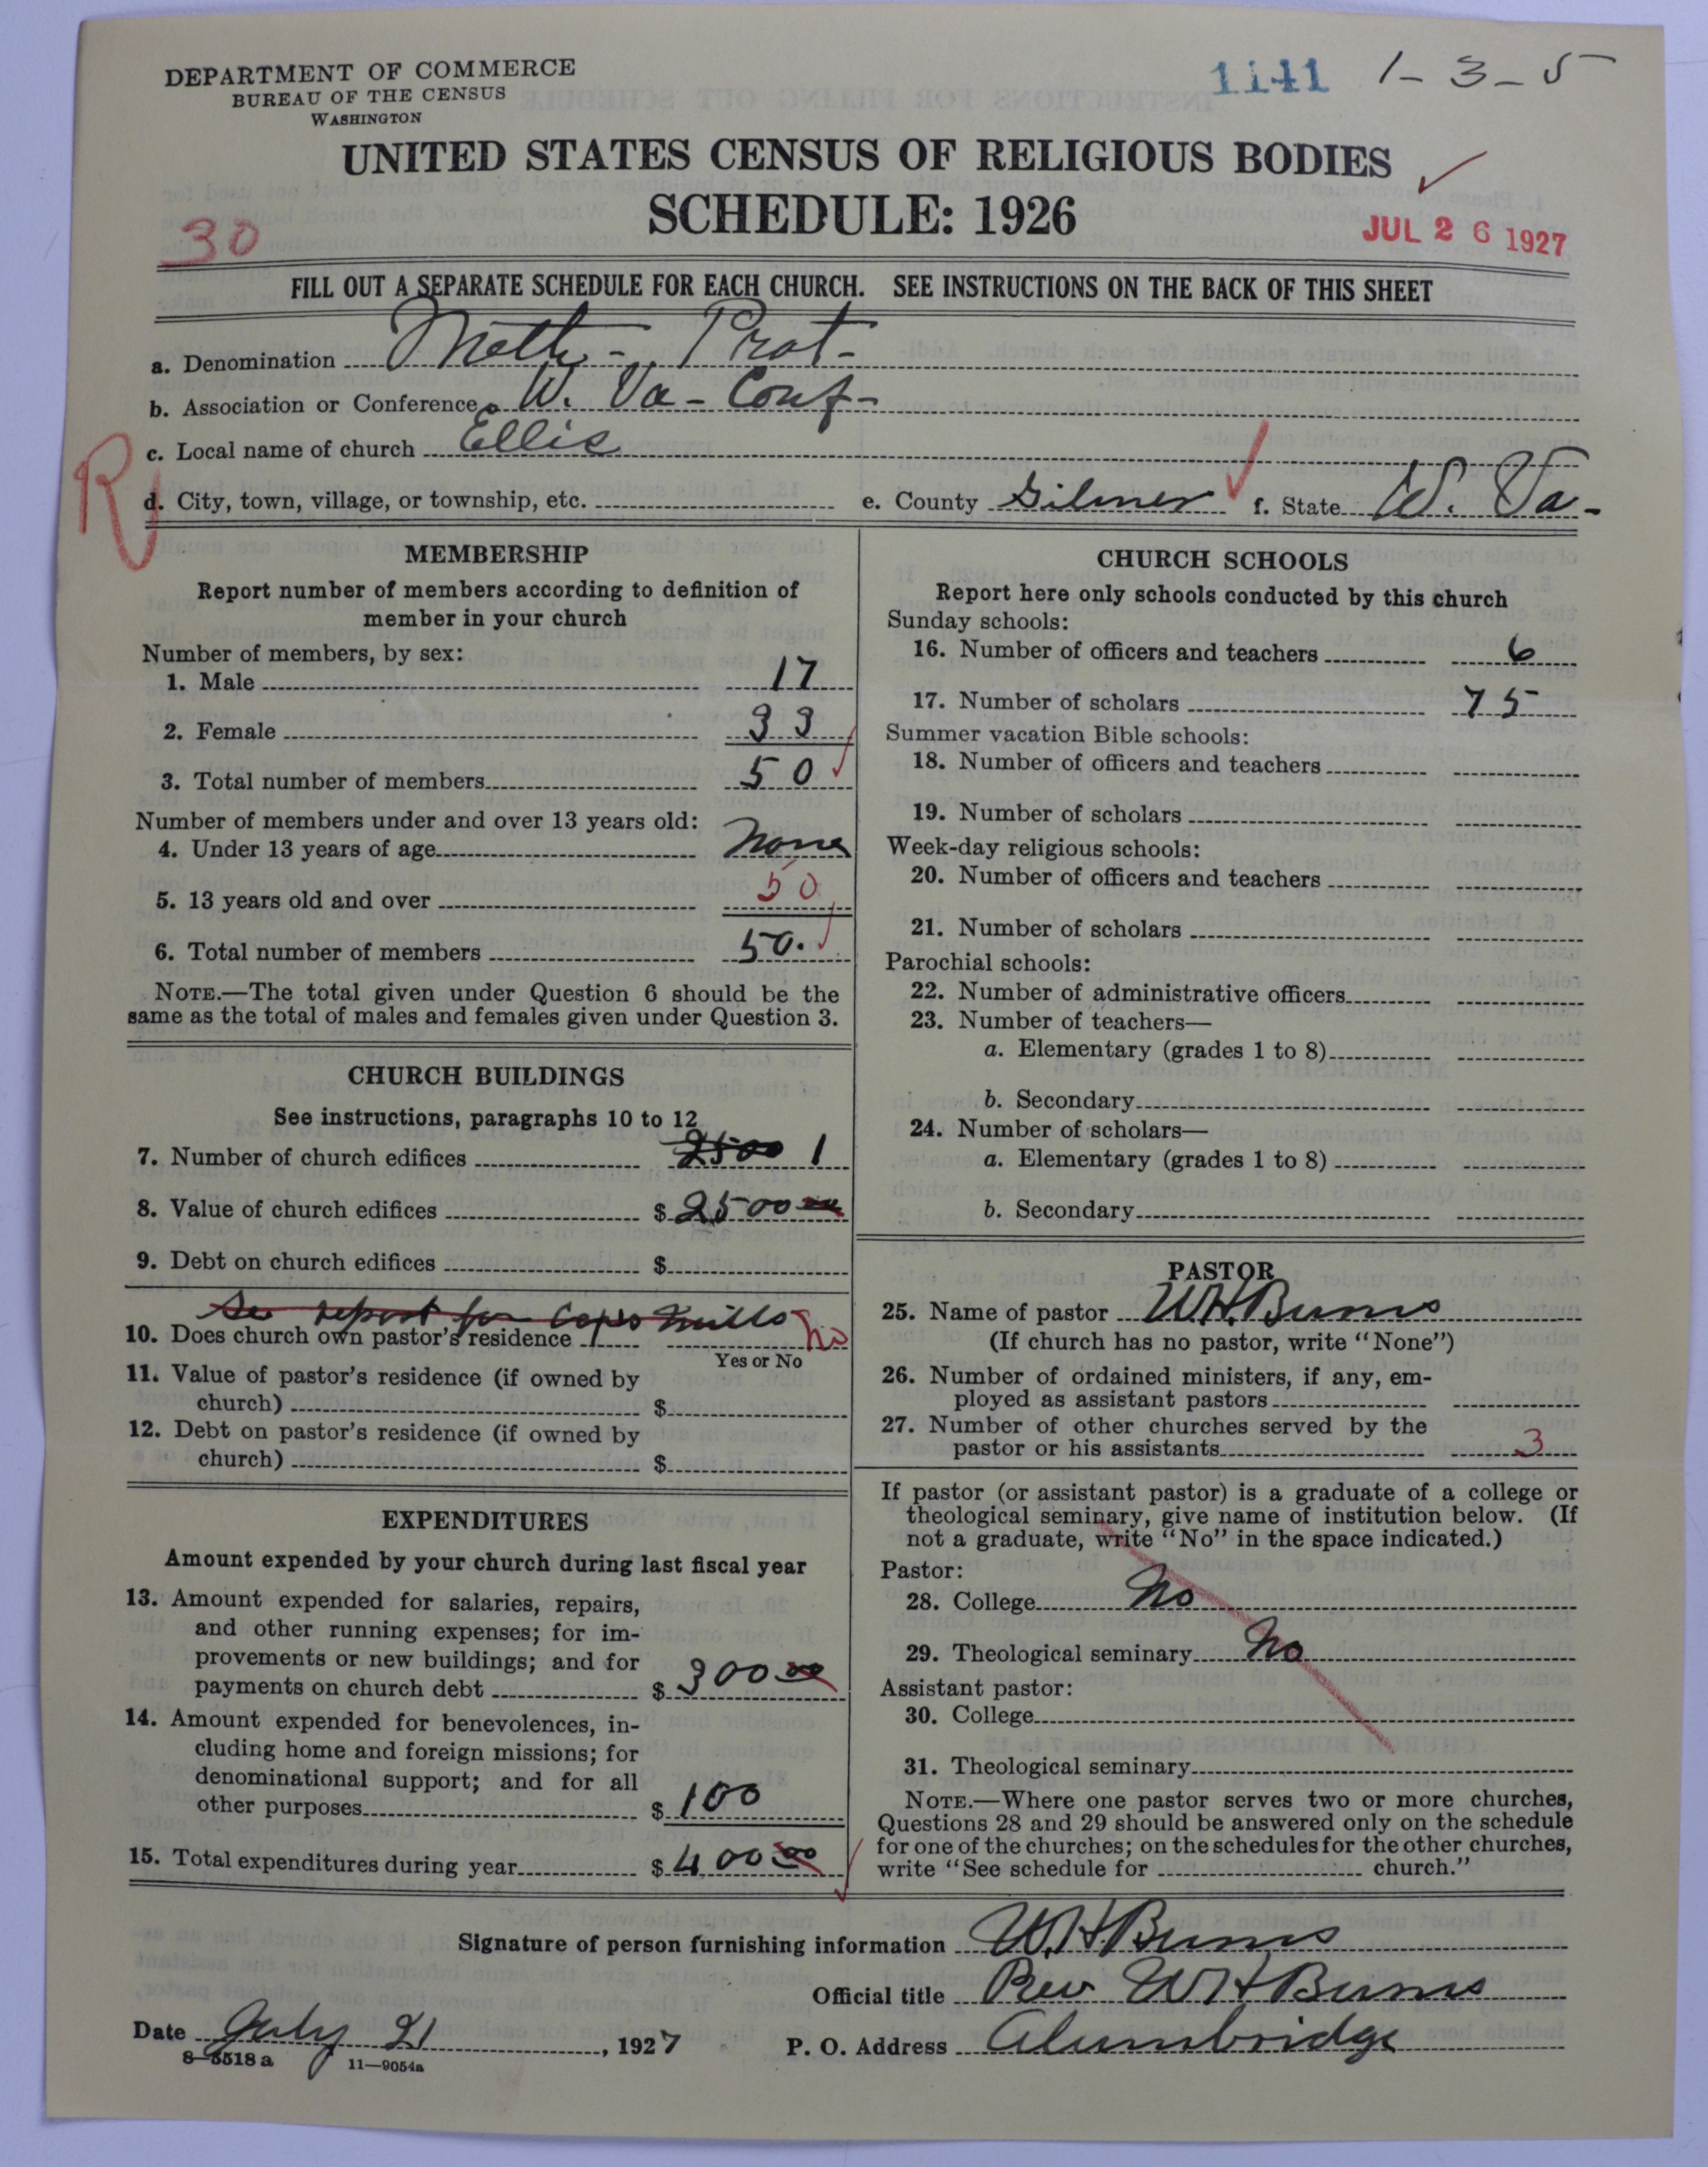 DEPARTMENT OF COMMERCE
BUREAU OF THE CENSUS
WASHINGTON
1141 1-3-5
UNITED STATES CENSUS OF RELIGIOUS BODIES
SCHEDULE: 1926
30
JUL 26 1927
FILL OUT A SEPARATE SCHEDULE FOR EACH CHURCH. SEE INSTRUCTIONS ON THE BACK OF THIS SHEET
a. Denomination Meth- Prot-
b. Association or Conference W. Va- Conf-
c. Local name of church Ellis
R
d. City, town, village, or township, etc. e. County Gilmer f. State W. Va-
MEMBERSHIP
Report number of members according to definition of
member in your church
Number of members, by sex:
1. Male 17
2. Female 33
3. Total number of members 50
Number of members under and over 13 years old:
4. Under 13 years of age None
5. 13 years old and over 50
6. Total number of members 50.
NOTE.—The total given under Question 6 should be the
same as the total of males and females given under Question 3.
CHURCH BUILDINGS
See instructions, paragraphs 10 to 12
7. Number of church edifices 2500 1
8. Value of church edifices $ 2500
9. Debt on church edifices $
See report for Cops Mills
10. Does church own pastor's residence no
Yes or No
11. Value of pastor's residence (if owned by
church) $
12. Debt on pastor's residence (if owned by
church) $
EXPENDITURES
Amount expended by your church during last fiscal year
13. Amount expended for salaries, repairs,
and other running expenses; for im-
provements or new buildings; and for
payments on church debt $ 300 00
14. Amount expended for benevolences, in-
cluding home and foreign missions; for
denominational support; and for all
other purposes $ 100
15. Total expenditures during year $ 400 00
CHURCH SCHOOLS
Report here only schools conducted by this church
Sunday schools:
16. Number of officers and teachers 6
17. Number of scholars 75
Summer vacation Bible schools:
18. Number of officers and teachers
19. Number of scholars
Week-day religious schools:
20. Number of officers and teachers
21. Number of scholars
Parochial schools:
22. Number of administrative officers
23. Number of teachers—
a. Elementary (grades 1 to 8)
b. Secondary
24. Number of scholars—
a. Elementary (grades 1 to 8)
b. Secondary
PASTOR
25. Name of pastor W.H. Burns
(If church has no pastor, write "None")
26. Number of ordained ministers, if any, em-
ployed as assistant pastors
27. Number of other churches served by the
pastor or his assistants 3
If pastor (or assistant pastor) is a graduate of a college or
theological seminary, give name of institution below. (If
not a graduate, write "No" in the space indicated.)
Pastor:
28. College No
29. Theological seminary No
Assistant pastor:
30. College
31. Theological seminary
NOTE.—Where one pastor serves two or more churches,
Questions 28 and 29 should be answered only on the schedule
for one of the churches; on the schedules for the other churches,
write "See schedule for church."
Signature of person furnishing information W.H. Burns
Official title Rev W H Burns
Date July 21, 1927 P. O. Address Alumbridge
8-5518 a 11-9054a